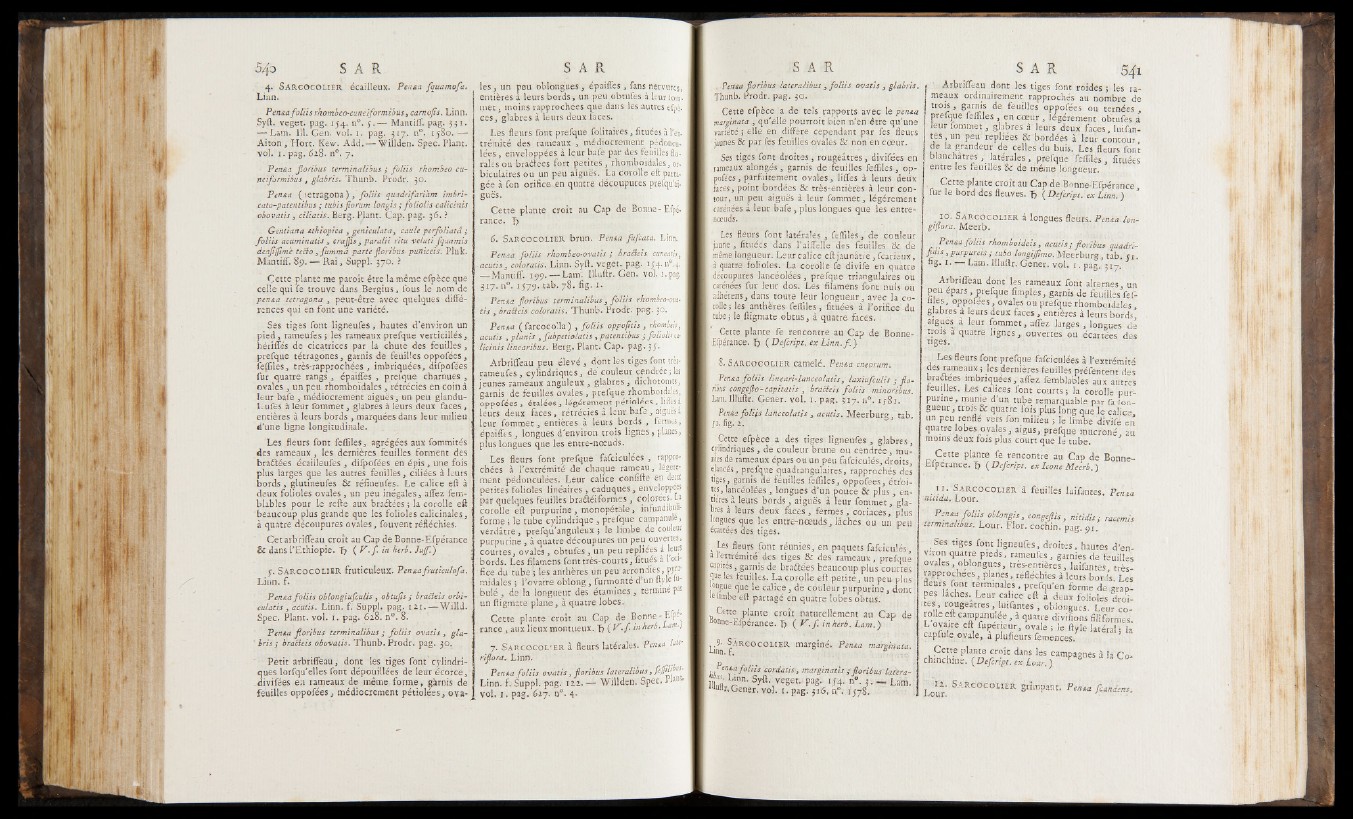 540 S A R
4. SARCOCOLIER écailleux. Penæa squamosa.
Linn.
Penæa foliis rhombeo-cuneiformibus, carnosis. Linn.
Syst. veget. pag. 154. n°. 5. — Mantiss. pag. 331.
— Lam. Ill. Gen. vol. 1. pag. 317. n°. 1580. —
Aiton, Hort. Kew. Add. — Willden. Spec. Plant.
vol. 1. pag. 628. n°. 7.
Penæa floribus terminalibus ; foliis rhombeo cu-
neiformibus, glabris. Thunb. Prodr. 30.
Penæa (tetragona), foliis quadrifariàm imbri-
cato-patentibus ; tubis florum longis ; foliolis calicinis
obovatis, ciliatis. Berg. Plant. Cap. pag. 36. ?
Gentiana ethiopica, geniculata, caule perfoliatâ ;
foliis acuminatis, crassis, paralii ritu veluti squamis
densissimè tecto, summâ parte floribus puniceis. Pluk.
Mantiss. 89. — Rai, Suppl. 370. ?
Cette plante me paroît être la même espèce que
celle qui se trouve dans Bergius, sous le nom de
penæa tetragona, peut-être avec quelques diffé-
rences qui en font une variété.
Ses tiges sont ligneuses, hautes d'environ un
pied, rameuses ; les rameaux presque verticillés,
hérissés de cicatrices par la chute des feuilles,
presque tétragones, garnis de feuilles opposées,
sessiles, très-rapprochées, imbriquées, disposées
sur quatre rangs, épaisses, presque charnues,
ovales, un peu rhomboïdales, rétrécies en coin à
leur base, médiocrement aiguës, un peu glandu-
leuses à leur sommet, glabres à leurs deux faces,
entières à leurs bords, marquées dans leur milieu
d'une ligne longitudinale.
Les fleurs sont sessiles, agrégées aux sommités
des rameaux, les dernières feuilles forment des
bractées écailleuses, disposées en épis, une fois
plus larges que les autres feuilles, ciliées à leurs
bords, glutineuses & résineuses. Le calice est à
deux folioles ovales, un peu inégales, assez sem-
blables pour le reste aux bractées ; la corolle est
beaucoup plus grande que les folioles calicinales,
à quatre découpures ovales, souvent réfléchies.
Cet arbrisseau croît au Cap de Bonne-Espérance
& dans l'Ethiopie. ♄ (V. s. in herb. Juss.)
5. SARCOCOLIER fruticuleux. Penæa fruticulosa.
Linn. f.
Penæa foliis oblongiusculis, obtusis ; bracteis orbi-
culatis, acutis. Linn. f. Suppl. pag. 121. — Willd.
Spec. Plant. vol. 1. pag. 628. n°. 8.
Penæa floribus terminalibus ; foliis ovatis, gla-
bris ; bracteis obovatis. Thunb. Prodr. pag. 30.
Petit arbrisseau, dont les tiges sont cylindri-
ques lorsqu'elles sont dépouillées de leur écorce,
divisées en rameaux de même forme, garnis de
feuilles opposées, médiocrement pétiolées, ova-
S A R
les, un peu oblongues, épaisses, sans nervures,
entières à leurs bords, un peu obtuses à leur som-
met, moins rapprochées que dans les autres espè-
ces, glabres à leurs deux faces.
Les fleurs sont presque solitaires, situées à l'ex-
trémité des rameaux, médiocrement pédoncu-
lées, enveloppées à leur base par des feuilles flo-
rales ou bractées fort petites, rhomboïdales, or-
biculaires ou un peu aiguës. La corolle est parta-
gée à son orifice en quatre découpures presqu'ai-
guës.
Cette plante croît au Cap de Bonne-Espé-
rance. ♄
6. SARCOCOLIER brun. Penæa fuscata. Linn.
Penæa foliis rhombeo-ovatis ; bracteis cuneatis,
acutis, coloratis. Linn. Syst. veget. pag. 154. n°.
— Mantiss. 199. — Lam. Illustr. Gen. vol. 1. pag.
317. n°. 1579. tab. 78. fig. 1.
Penæa floribus terminalibus, foliis rhombeo-ova-
tis, bracteis coloratis. Thunb. Prodr. pag. 30.
Penæa (sarcocolla), foliis oppositis, rhombeis,
acutis, planis, subpetiolatis, patentibus ; foliolis ca-
licinis linearibus. Berg. Plant. Cap. pag. 35.
Arbrisseau peu élevé, dont les tiges sont très-
rameuses, cylindriques, de couleur cendrée ; les
jeunes rameaux anguleux, glabres, dichotomes,
garnis de feuilles ovales, presque rhomboïdales,
opposées, étalées, légérement pétiolées, lisses à
leurs deux faces, rétrécies à leur base, aiguës à
leur sommet, entières à leurs bords, fermes,
épaisses, longues d'environ trois lignes, planes,
plus longues que les entre-nœuds.
Les fleurs sont presque fasciculées, rappro-
chées à l'extrémité de chaque rameau, légére-
ment pédonculées. Leur calice consiste en deux
petites folioles linéaires, caduques, enveloppées
par quelques feuilles bractéiformes, colorées. La
corolle est purpurine, monopétale, infundibuli-
forme ; le tube cylindrique, presque campanulé,
verdâtre, presqu'anguleux ; le limbe de couleur
purpurine, à quatre découpures un peu ouvertes,
courtes, ovales, obtuses, un peu repliées à leurs
bords. Les filamens sont très-courts, situés à l'ori-
fice du tube ; les anthères un peu arrondies, pyra-
midales ; l'ovaire oblong, surmonté d'un style tu-
bulé, de la longueur des étamines, terminé par
un stigmate plane, à quatre lobes.
Cette plante croît au Cap de Bonne-Espé-
rance, aux lieux montueux. ♄ (V. s. in herb. Lam.)
7. SARCOCOLIER à fleurs latérales. Penæa late-
riflora. Linn.
Penæa foliis ovatis, floribus lateralibus, sessilibus.
Linn. f. Suppl. pag. 122. — Willden. Spec. Plant.
vol. 1. pag. 627. n°. 4.
S A R
Penæa floribus lateralibus, foliis ovatis, glabris.
Thunb. Prodr. pag. 30.
Cette espèce a de tels rapports avec le penæa
marginata, qu'elle pourroit bien n'en être qu'une
variété ; elle en diffère cependant par ses fleurs
jaunes & par ses feuilles ovales & non en cœur.
Ses tiges sont droites, rougeâtres, divisées en
rameaux alongés, garnis de feuilles sessiles, op-
posées, parfaitement ovales, lisses à leurs deux
faces, point bordées & très-entières à leur con-
tour, un peu aiguës à leur sommet, légérement
carénées à leur base, plus longues que les entre-
nœuds.
Les fleurs sont latérales, sessiles, de couleur
jaune, situées dans l'aisselle des feuilles & de
même longueur. Leur calice est jaunâtre, scarieux,
à quatre folioles. La corolle se divise en quatre
découpures lancéolées, presque triangulaires ou
carénées sur leur dos. Les filamens sont nuls ou
adhérens, dans toute leur longueur, avec la co-
rolle ; les anthères sessiles, situées à l'orifice du
tube ; le stigmate obtus, à quatre faces.
Cette plante se rencontre au Cap de Bonne-
Espérance. ♄ (Descript. ex Linn. f.)
8. SARCOCOLIER camelé. Penæa cneorum.
Penæa foliis lineari-lanceolatis, laxiusculis ; flo-
ribus congesto-capitatis, bracteis foliis minoribus.
Lam. Illustr. Gener. vol. 1. pag. 317. n°. 1583.
Penæa foliis lanceolatis, acutis. Meerburg, tab.
51. fig. 2.
Cette espèce a des tiges ligneuses, glabres,
cylindriques, de couleur brune ou cendrée, mu-
nies de rameaux épars ou un peu fasciculés, droits,
élancés, presque quadrangulaires, rapprochés des
tiges, garnis de feuilles sessiles, opposées, étroi-
tes, lancéolées, longues d'un pouce & plus, en-
tières à leurs bords, aiguës à leur sommet, gla-
bres à leurs deux faces, fermes, coriaces, plus
longues que les entre-nœuds, lâches ou un peu
écartées des tiges.
Les fleurs sont réunies, en paquets fasciculés,
à l'extrémité des tiges & des rameaux, presque
capités, garnis de bractées beaucoup plus courtes
que les feuilles. La corolle est petite, un peu plus
longue que le calice, de couleur purpurine, dont
le limbe est partagé en quatre lobes obtus.
Cette plante croît naturellement au Cap de
Bonne-Espérance. ♄ (V. s. in herb. Lam.)
9. SARCOCOLIER marginé. Penæa marginata.
Linn. f.
Penæa foliis cordatis, marginatis ; floribus latera-
libus. Linn. Syst. veget. pag. 154. n°. 3. — Lam.
Illustr. Gener. vol. 1. pag. 316. n°. 1578.
S A R 541
Arbrisseau dont les tiges sont roides ; les ra-
meaux ordinairement rapprochés au nombre de
trois, garnis de feuilles opposées ou ternées,
presque sessiles, en cœur, légérement obtuses à
leur sommet, glabres à leurs deux faces, luisan-
tes, un peu repliées & bordées à leur contour,
de la grandeur de celles du buis. Les fleurs sont
blanchâtres, latérales, presque sessiles, situées
entre les feuilles & de même longueur.
Cette plante croît au Cap de Bonne-Espérance,
sur le bord des fleuves. ♄ (Descript. ex Linn.)
10. SARCOCOLIER à longues fleurs. Penæa lon-
giflora. Meerb.
Penæa foliis rhomboideis, acutis ; floribus quadri-
fidis, purpureis ; tubo longissimo. Meerburg, tab. 51.
fig. 1. — Lam. Illustr. Gener. vol. 1. pag. 317.
Arbrisseau dont les rameaux sont alternes, un
peu épars, presque simples, garnis de feuilles ses-
siles, opposées, ovales ou presque rhomboïdales,
glabres à leurs deux faces, entières à leurs bords,
aiguës à leur sommet, assez larges, longues de
trois à quatre lignes, ouvertes ou écartées des
tiges.
Les fleurs sont presque fasciculées à l'extrémité
des rameaux ; les dernières feuilles présentent des
bractées imbriquées, assez semblables aux autres
feuilles. Les calices sont courts ; la corolle pur-
purine, munie d'un tube remarquable par sa lon-
gueur, trois & quatre fois plus long que le calice,
un peu renflé vers son milieu ; le limbe divisé en
quatre lobes ovales, aigus, presque mucroné, au
moins deux fois plus court que le tube.
Cette plante se rencontre au Cap de Bonne-
Espérance. ♄ (Descript. ex Icone Meerb.)
11. SARCOCOLIER à feuilles luisantes. Penæa
nitida. Lour.
Penæa foliis oblongis, congestis, nitidis ; racemis
terminalibus. Lour. Flor. cochin. pag. 91.
Ses tiges sont ligneuses, droites, hautes d'en-
viron quatre pieds, rameuses, garnies de feuilles
ovales, oblongues, très-entières, luisantes, très-
rapprochées, planes, réfléchies à leurs bords. Les
fleurs sont terminales, presqu'en forme de grap-
pes lâches. Leur calice est à deux folioles droi-
tes, rougeâtres, luisantes, oblongues. Leur co-
rolle est campanulée, à quatre divisions filiformes.
L'ovaire est supérieur, ovale ; le style latéral ; la
capsule ovale, à plusieurs semences.
Cette plante croît dans les campagnes à la Co-
chinchine. (Descript. ex Lour.)
12. SARCOCOLIER grimpant. Penæa scandens.
Lour.